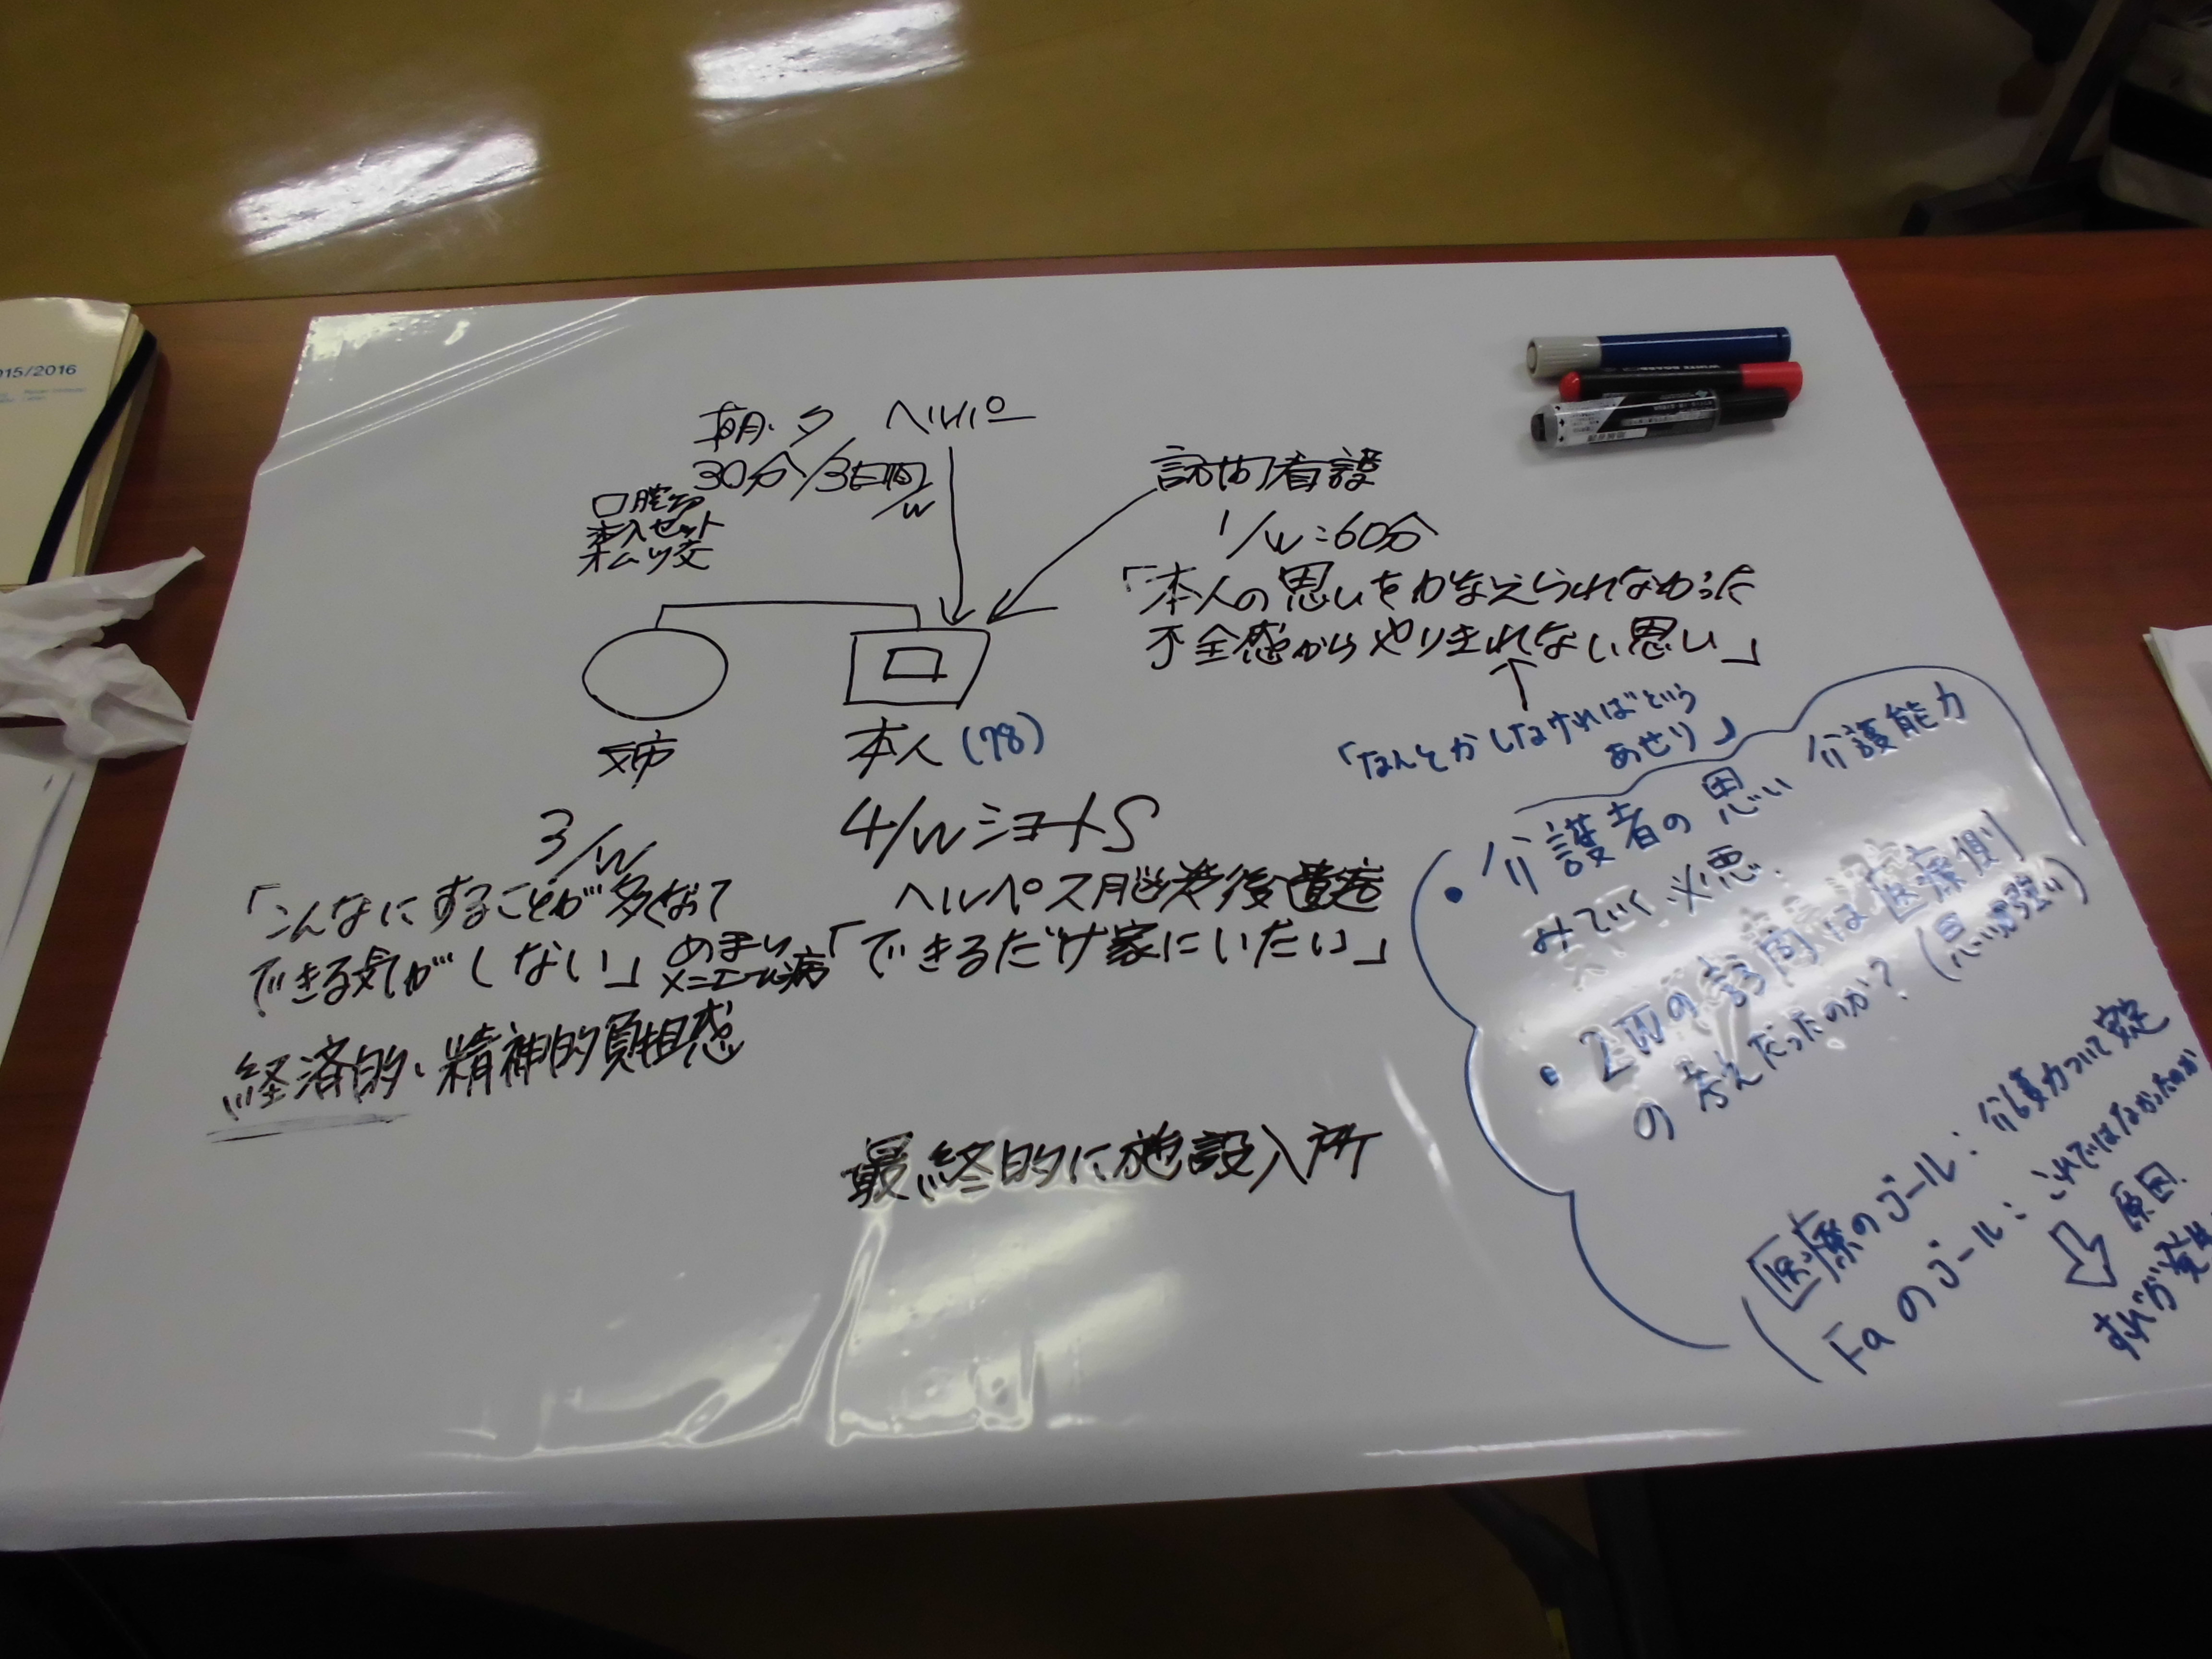 015/2016
朝・夕 ヘルパー
30分/3日間/W
口腔ケア
オムツ交
訪問看護
1/W:60分
「本人の思いをかなえられなかった
不全感からやりきれない思い」
「なんとかしなければという
あせり」
姉
本人(78)
3/W
4/WショートS
「こんなにすることが多くなって
できる気がしない」
めまい
メニエール病
ヘルペス脳炎後遺症
「できるだけ家にいたい」
経済的・精神的負担感
最終的に施設入所
・介護者の思い 介護能力
みていく必要.
・2Wの訪問は医療側
の考えだったのか?(思いが強い)
医療のゴール:介護力ついて安定
Faのゴール:これではなかったのか
原因.